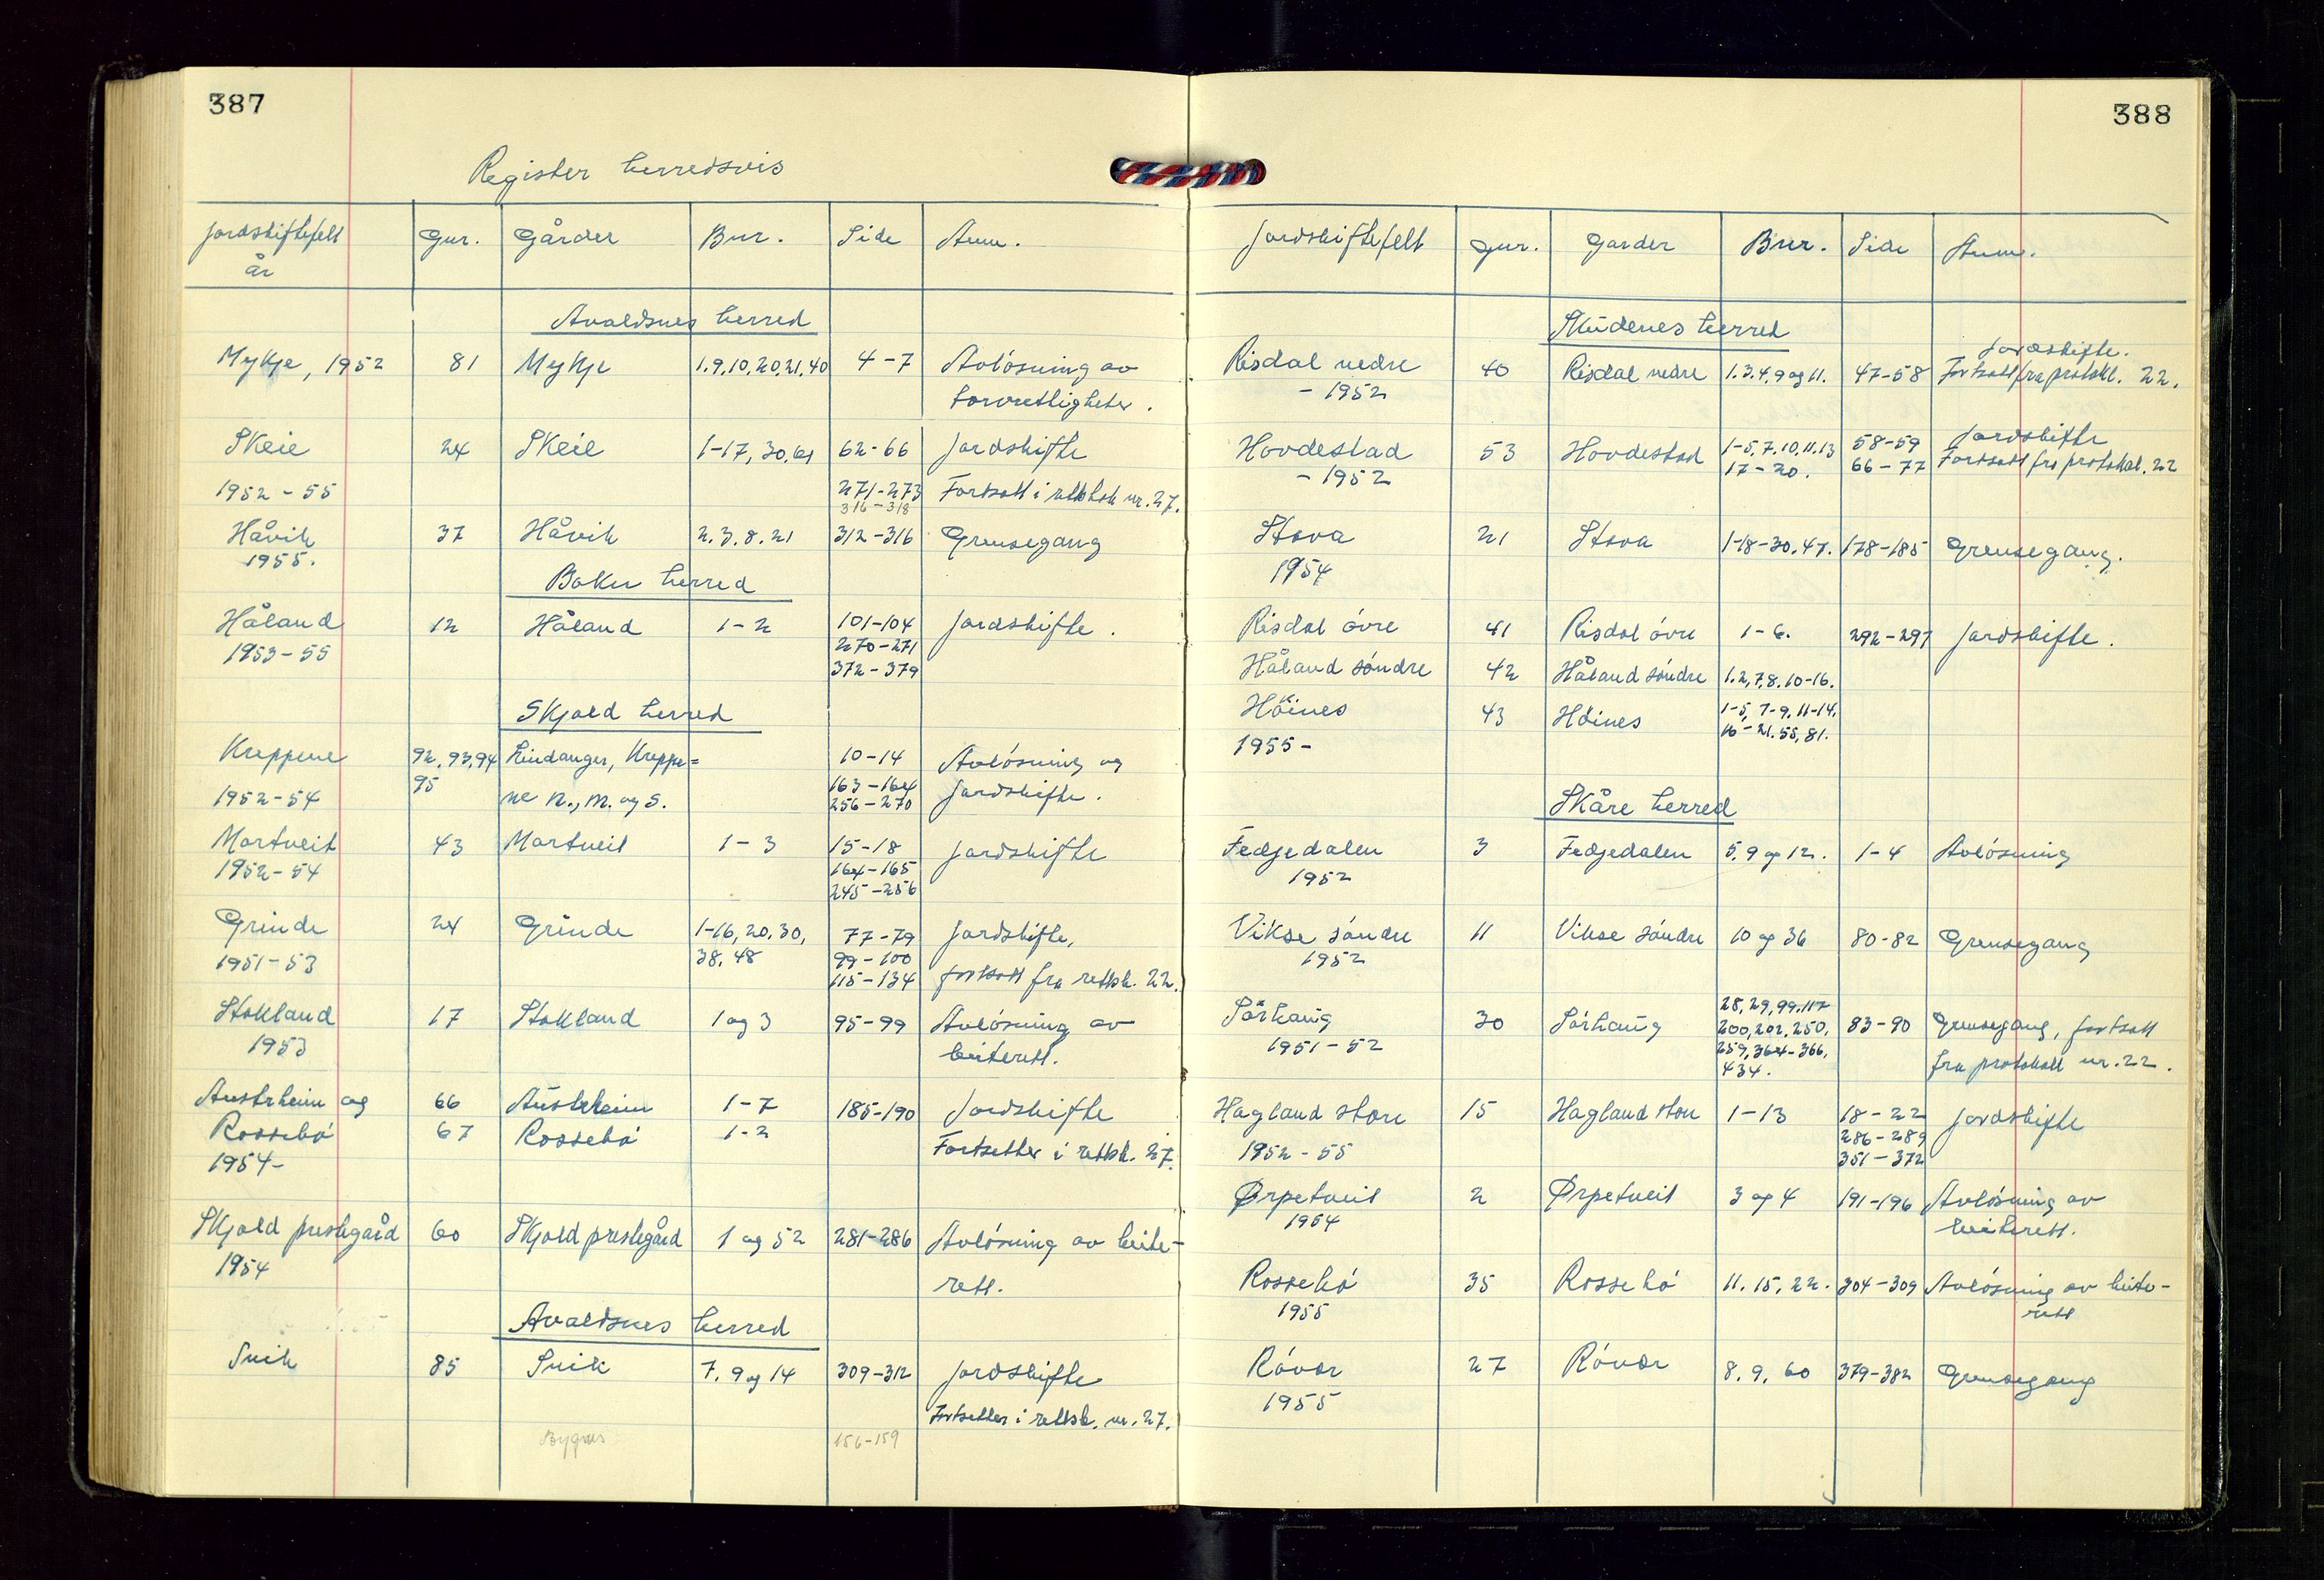 387
Register herredsvis
Jordskiftefelt år | Gnr. | Gårder | Bnr. | Side | Anm.
Avaldsnes herred
Mykje, 1952 | 81 | Mykje | 1.9,10,20,21,40 | 4-7 | Avlösning av
torvrettigheter.
Skeie | 24 | Skeie | 1-17, 30,61 | 62-66 | Jordskifte
1952-55 | 271-273 | Fortsatt i rettsbok nr. 27.
316-318
Håvik | 37 | Håvik | 2.3.8.21 | 312-316 | Grensegang
1955.
Bokn herred
Håland | 12 | Håland | 1-2 | 101-104 | Jordskifte.
1953-55 | 270-271
372-379
Skjold herred
Kreppene | 92, 93,94 | Lindanger, Kreppe= | 10-14 | Avlösning og
95 | 163-164
1952-54 | ne n., m. og s. | 256-270 | jordskifte.
Martveit | 43 | Martveit | 1-3 | 15-18 | Jordskifte
1952-54 | 164-165
245-256
Grinde | 24 | Grinde | 1-16, 20, 30, | 77-79 | Jordskifte,
1951-53 | 38, 48 | 99-100
115-134 | fortsatt fra rettsb. 22.
Stokland | 17 | Stokland | 1 og 3 | 95-99 | Avlösning av
1953 | beiterett.
Austrheim og | 66 | Austrheim | 1-7 | 185-190 | Jordskifte
Rossebö | 67 | Rossebö | 1-2
1954- | Fortsetter i rettsb. 27.
Skjold prestegård | 60 | Skjold prestegård | 1 og 52 | 281-286 | Avlösning av beite-
1954 | rett.
Avaldsnes herred
Snik | 85 | Snik | 7. 9 og 14 | 309-312 | Jordskifte
Fortsetter i rettsb. nr. 27.
156-159
388
Jordskiftefelt | Gnr. | Garder | Bnr. | Side | Anm.
Skudenes herred
Jordskifte.
Risdal nedre | 40 | Risdal nedre | 1.3.4,9 og 11. | 47-58 | Fortsatt fra protokl. 22.
- 1952
Hovdestad | 53 | Hovdestad | 1-5,7,10,11.13 | 58-59 | Jordskifte
- 1952 | 17-20. | 66-77 | Fortsatt fra protokol. 22
Stava | 21 | Stava | 1-18-30.47. | 178-185 | Grensegang.
1954
Risdal övre | 41 | Risdal övre | 1-6. | 292-297 | Jordskifte.
Håland söndre | 42 | Håland söndre | 1.2,7,8,10-16.
Höines | 43 | Höines | 1-5, 7-9, 11-14,
1955- | 16-21.55, 81.
Skåre herred
Fedjedalen | 3 | Fedjedalen | 5, 9 og 12. | 1-4 | Avlösning
1952
Vikse söndre | 11 | Vikse söndre | 10 og 36 | 80-82 | Grensegang
1952
Sörhaug | 30 | Sörhaug | 28, 29, 99, 117 | 83-90 | Grensegang, fortsatt
1951-52 | 200, 202, 250,
259, 364-366, | fra protokoll nr. 22.
434.
Hagland store | 15 | Hagland store | 1-13 | 18-22 | Jordskifte
1952-55 | 286-289
351-372
Ørpetveit | 2 | Ørpetveit | 3 og 4 | 191-196 | Avlösning av
1954 | beiterett.
Rossebö | 35 | Rossebö | 11. 15, 22. | 304-309 | Avlösning av beite-
1955 | rett
Rövær | 27 | Rövær | 8. 9. 60 | 379-382 | Grensegang
1955